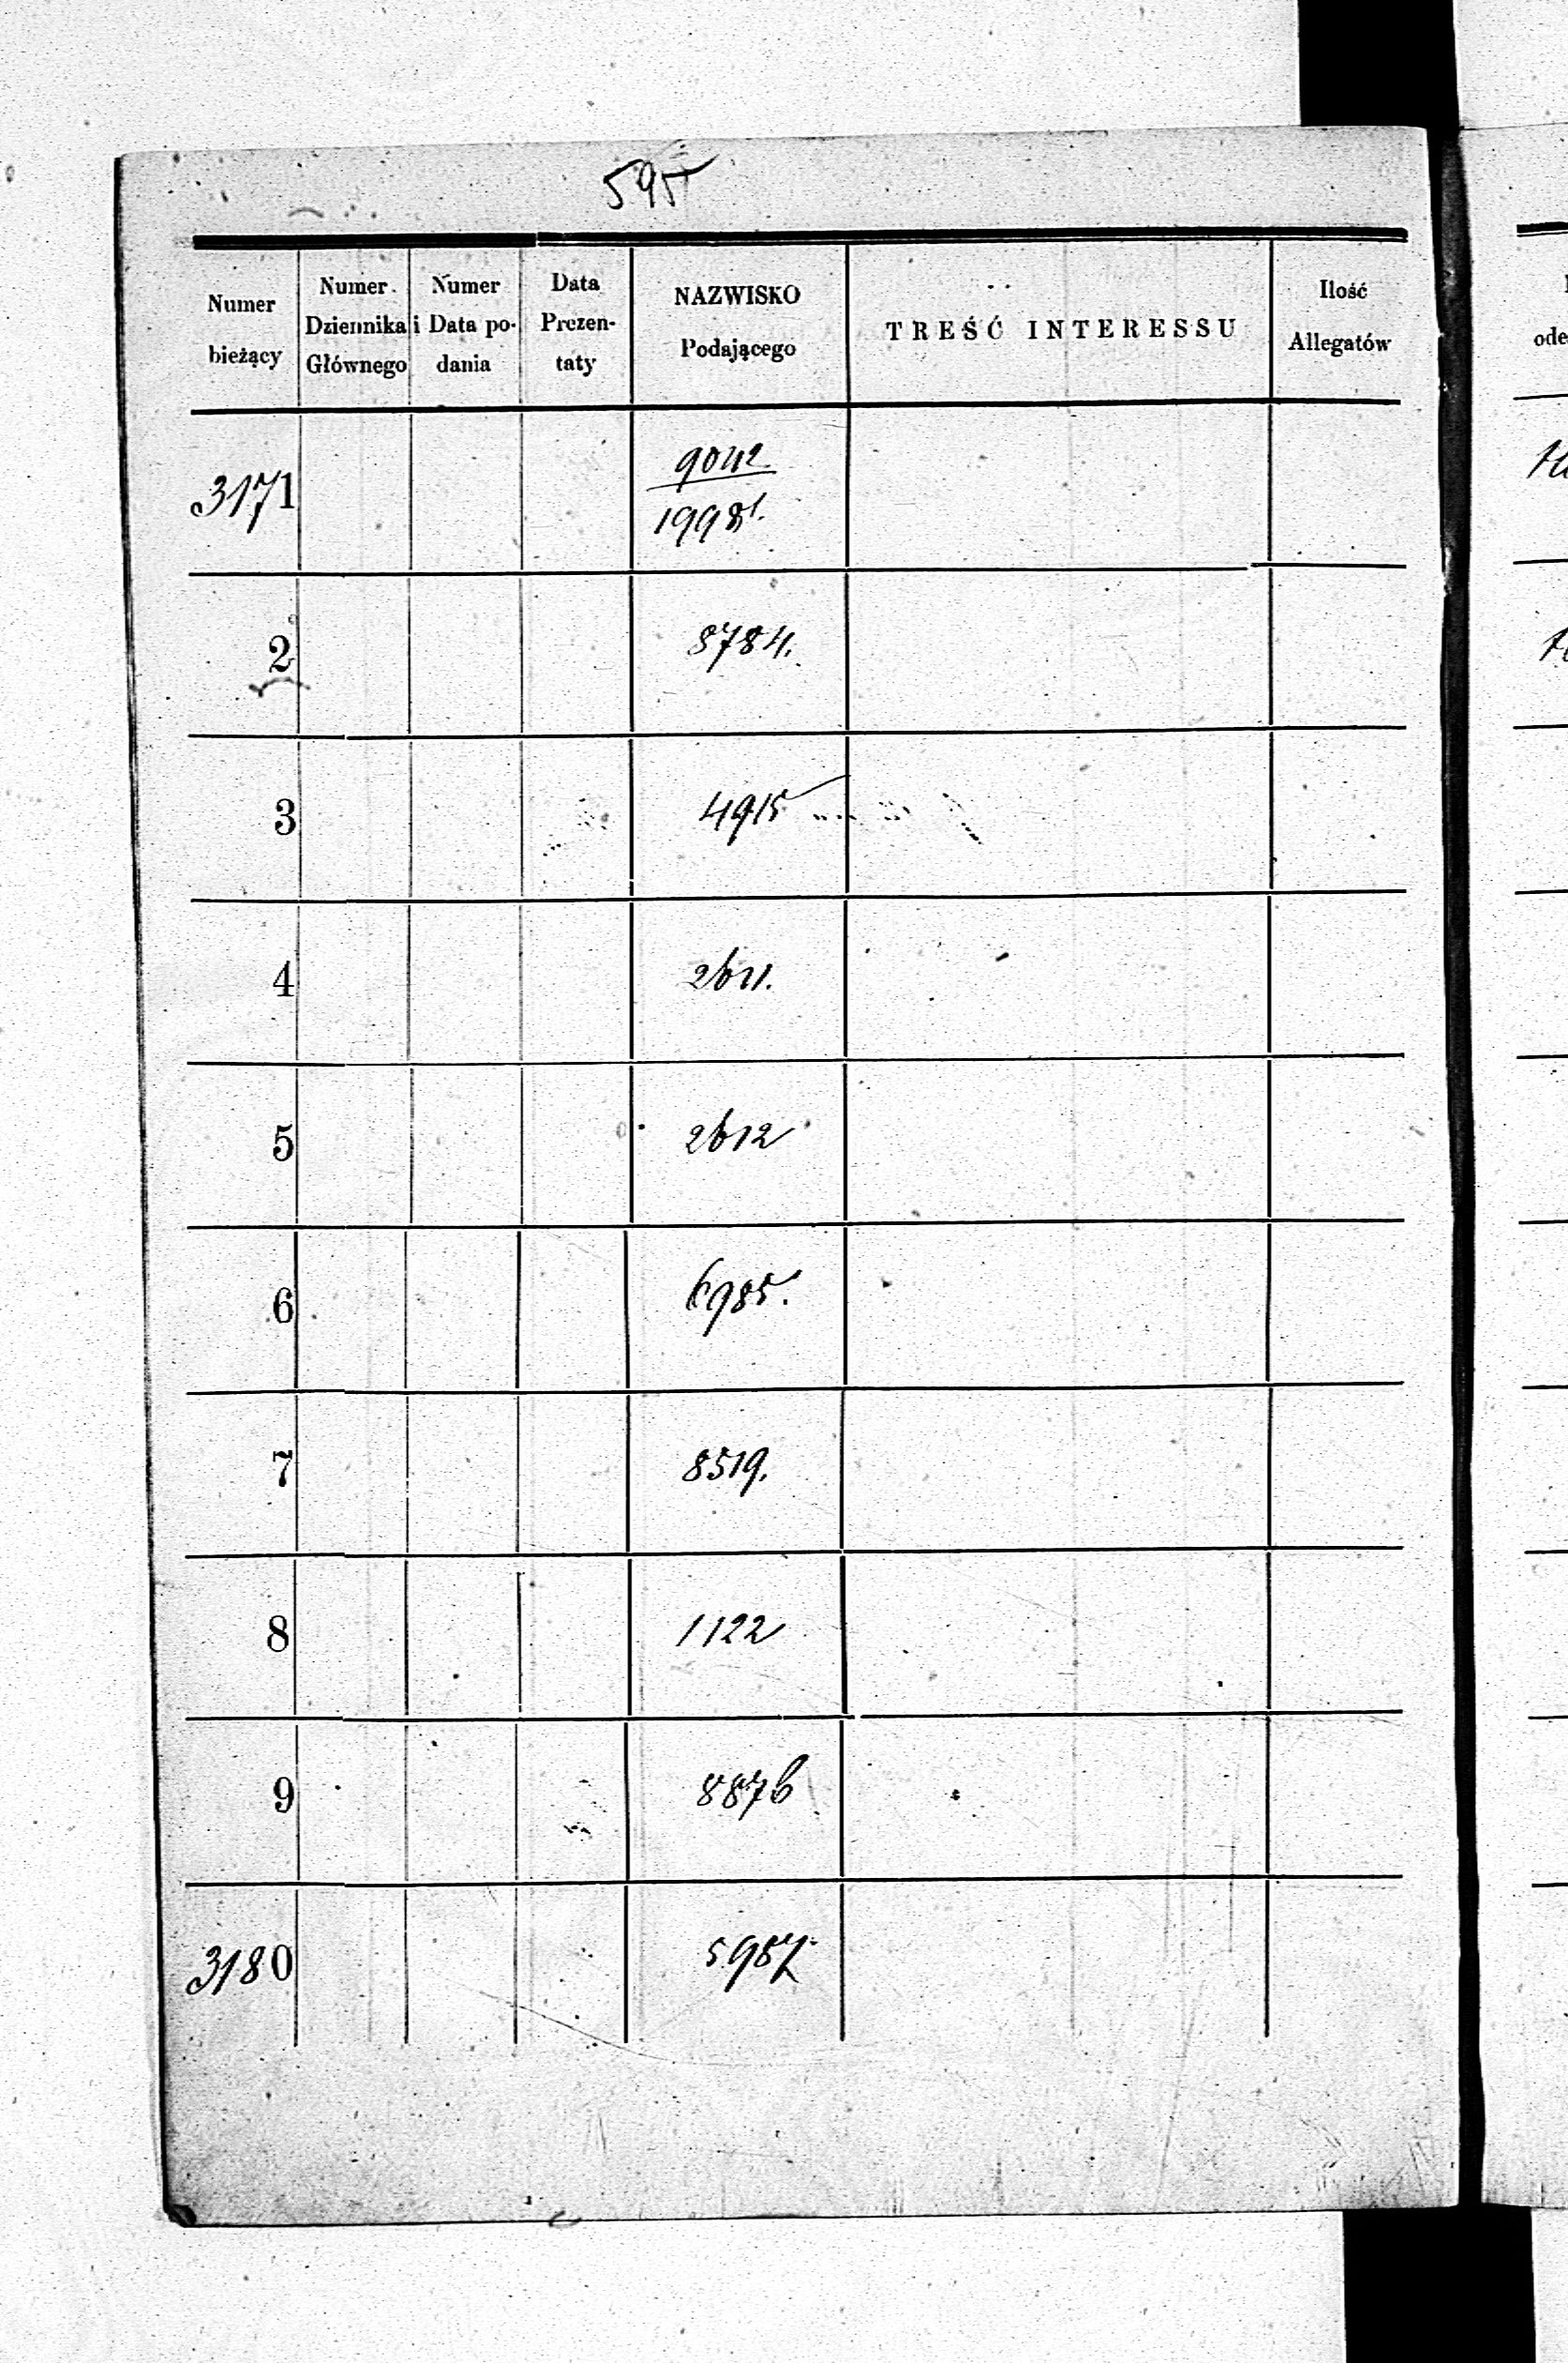 595
Numer bieżący
Numer Dziennika Głównego
Numer i Data podania
Data Prezentaty
NAZWISKO Podającego
TREŚĆ INTERESSU
Ilość Allegatów
3171 9042
1998
2 8784.
3 4915
4 2611.
5 2612
6 6985.
7 8519.
8 1122
9 8876
3180 5987